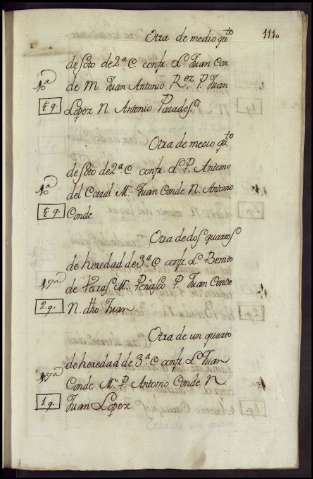 111.
Otra de medio qto
de soto de 2ª C confi. L. Juan Con
10ª de M. Juan Antonio Rez. P. Juan
Lopez N. Antonio Paradas
Otra de medio qto
de soto de 2ª C confi. L. P. Antonio
10ª del Corral M. Juan Conde N. Antonio
Conde
Otra de dos quartos
de heredad de 3ª C confi. L. Benito
17ª de M. P. Juan Conde
2 q. N. dho Juan
Otra de un quarto
de heredad de 3ª C confi. L. Juan
17ª Conde M. P. Antonio Conde N
1 q. Juan Lopez